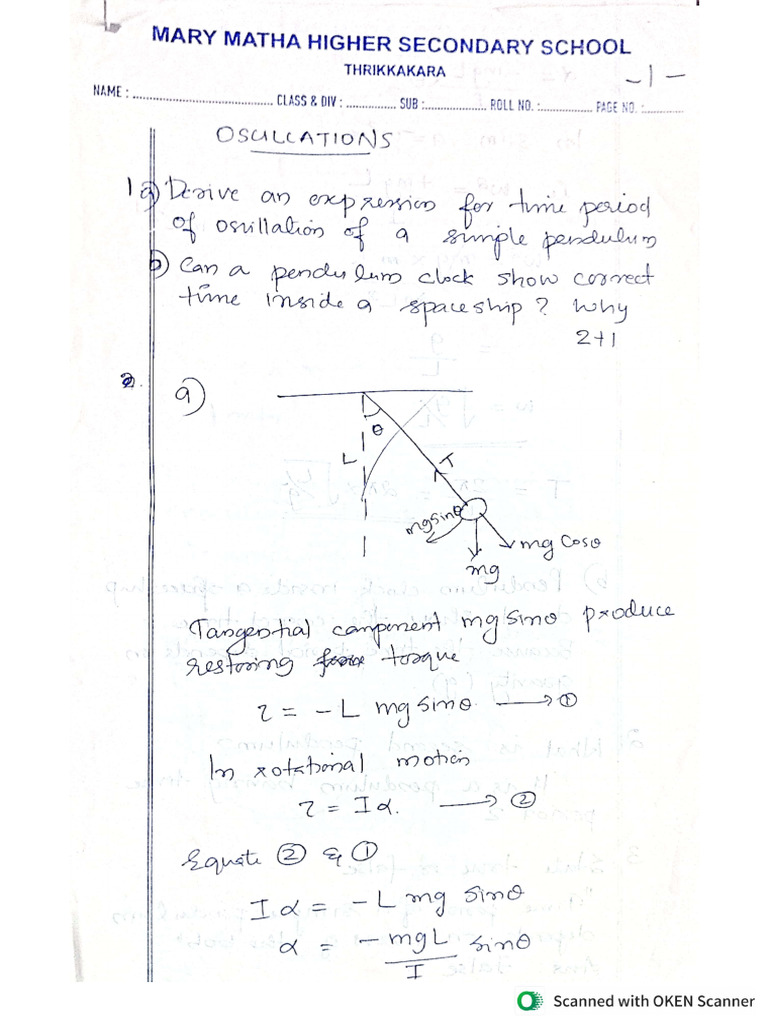 MARY MATHA HIGHER SECONDARY SCHOOL
THRIKKAKARA
-1-
NAME : ........................................ CLASS & DIV : .............. SUB : ................. ROLL NO. : .............. PAGE NO. : ...........
OSCILLATIONS
1 a) Derive an expression for time period
of oscillation of a simple pendulum
b) Can a pendulum clock show correct
time inside a spaceship? Why
2+1
2. a)
θ
L
T
mg sinθ
mg Cosθ
mg
Tangential component mg sinθ produce
restoring torque
τ = -L mg sinθ. → ①
In rotational motion
τ = Iα. → ②
Equate ② & ①
Iα = -L mg sinθ
α = -mgL/I sinθ
Scanned with OKEN Scanner